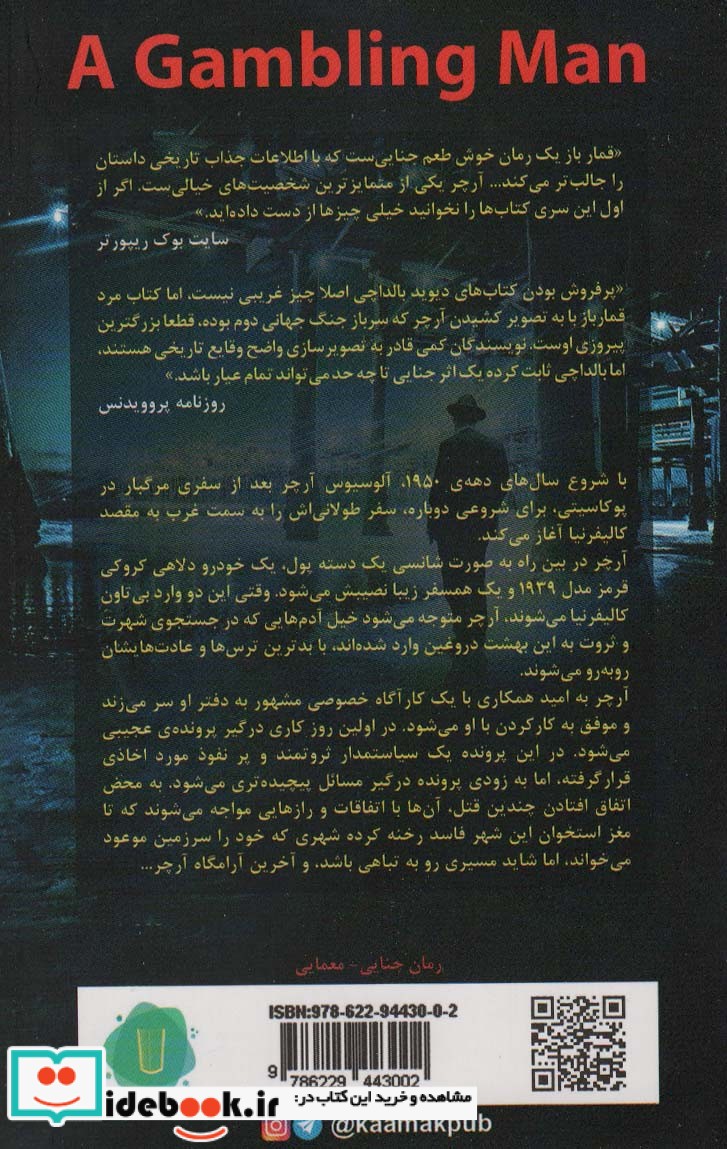 A Gambling Man
«قمار باز یک رمان خوش طعم جنایی‌ست که با اطلاعات جذاب تاریخی داستان
را جالب‌تر می‌کند... آرچر یکی از متمایزترین شخصیت‌های خیالی‌ست. اگر از
اول این سری کتاب‌ها را نخوانید خیلی چیزها از دست داده‌اید.»
سایت بوک ریپورتر
«پرفروش بودن کتاب‌های دیوید بالداچی اصلا چیز غریبی نیست، اما کتاب مرد
قمارباز با به تصویر کشیدن آرچر که سرباز جنگ جهانی دوم بوده، قطعا بزرگترین
پیروزی اوست. نویسندگان کمی قادر به تصویرسازی واضح وقایع تاریخی هستند،
اما بالداچی ثابت کرده یک اثر جنایی تا چه حد می‌تواند تمام عیار باشد.»
روزنامه پروویدنس
با شروع سال‌های دهه‌ی ۱۹۵۰، آلوسیوس آرچر بعد از سفری مرگبار در
پوکاسیتی، برای شروعی دوباره، سفر طولانی‌اش را به سمت غرب به مقصد
کالیفرنیا آغاز می‌کند.
آرچر در بین راه به صورت شانسی یک دسته پول، یک خودرو دلاهی کروکی
قرمز مدل ۱۹۳۹ و یک همسفر زیبا نصیبش می‌شود. وقتی این دو وارد بی‌تاون
کالیفرنیا می‌شوند، آرچر متوجه می‌شود خیل آدم‌هایی که در جستجوی شهرت
و ثروت به این بهشت دروغین وارد شده‌اند، با بدترین ترس‌ها و عادت‌هایشان
روبه‌رو می‌شوند.
آرچر به امید همکاری با یک کارآگاه خصوصی مشهور به دفتر او سر می‌زند
و موفق به کارکردن با او می‌شود. در اولین روز کاری درگیر پرونده‌ی عجیبی
می‌شود. در این پرونده یک سیاستمدار ثروتمند و پر نفوذ مورد اخاذی
قرارگرفته، اما به زودی پرونده درگیر مسائل پیچیده‌تری می‌شود. به محض
اتفاق افتادن چندین قتل، آن‌ها با اتفاقات و رازهایی مواجه می‌شوند که تا
مغز استخوان این شهر فاسد رخنه کرده شهری که خود را سرزمین موعود
می‌خواند، اما شاید مسیری رو به تباهی باشد، و آخرین آرامگاه آرچر...
رمان جنایی - معمایی
ISBN:978-622-94430-0-2
9 786229 443002
مشاهده و خرید این کتاب در:
idebook.ir
@kaamakpub